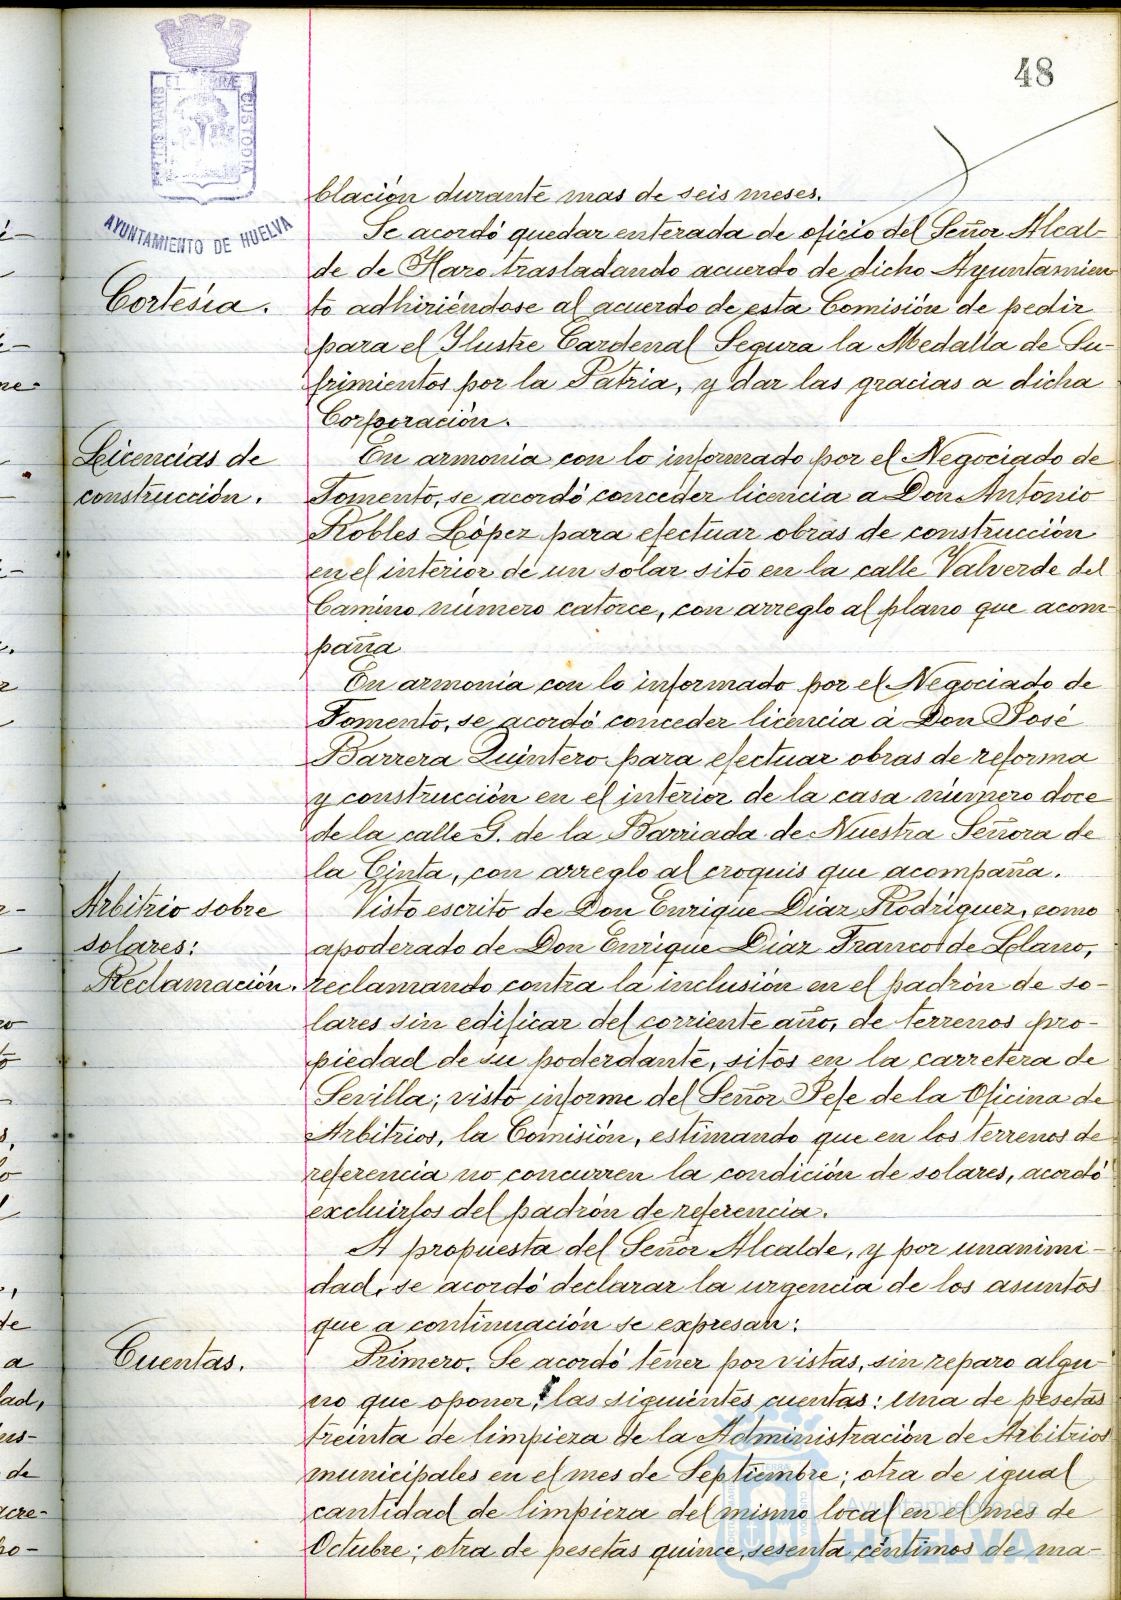 48
PORTUS MARIS ET TERRÆ CUSTODIA
AYUNTAMIENTO DE HUELVA
blación durante mas de seis meses.
Cortesía.
Se acordó quedar enterada de oficio del Señor Alcal-
de de Haro trasladando acuerdo de dicho Ayuntamien-
to adhiriéndose al acuerdo de esta Comisión de pedir
para el Ilustre Cardenal Segura la Medalla de Su-
frimientos por la Patria, y dar las gracias a dicha
Corporación.
Licencias de
construcción.
En armonia con lo informado por el Negociado de
Fomento, se acordó conceder licencia a Don Antonio
Robles López para efectuar obras de construcción
en el interior de un solar sito en la calle Valverde del
Camino número catorce, con arreglo al plano que acom-
paña
En armonia con lo informado por el Negociado de
Fomento, se acordó conceder licencia á Don José
Barrera Quintero para efectuar obras de reforma
y construcción en el interior de la casa número doce
de la calle G. de la Barriada de Nuestra Señora de
la Cinta, con arreglo al croquis que acompaña.
Arbitrio sobre
solares:
Reclamación.
Visto escrito de Don Enrique Díaz Rodríguez, como
apoderado de Don Enrique Díaz Franco de Llano,
reclamando contra la inclusión en el padrón de so-
lares sin edificar del corriente año, de terrenos pro-
piedad de su poderdante, sitos en la carretera de
Sevilla; visto informe del Señor Jefe de la Oficina de
Arbitrios, la Comisión, estimando que en los terrenos de
referencia no concurren la condición de solares, acordó
excluirlos del padrón de referencia.
A propuesta del Señor Alcalde, y por unanimi-
dad, se acordó declarar la urgencia de los asuntos
que a continuación se expresan:
Cuentas.
Primero. Se acordó tener por vistas, sin reparo algu-
no que oponer, las siguientes cuentas: una de pesetas
treinta de limpieza de la Administración de Arbitrios
municipales en el mes de Septiembre; otra de igual
cantidad de limpieza del mismo local en el mes de
Octubre; otra de pesetas quince, sesenta céntimos de ma-
Ayuntamiento de
HUELVA